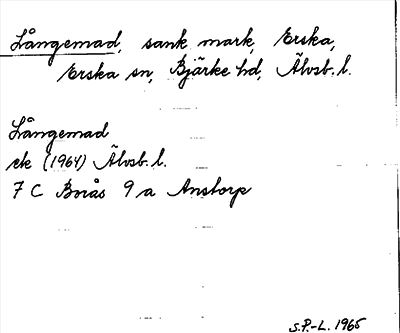 Långemad, sank mark, Erska,
Erska sn, Bjärke hd, Älvsb. l.
Långemad
ek (1964) Älvsb. l.
7 C Borås 9 a Anstorp
S.P.-L. 1965